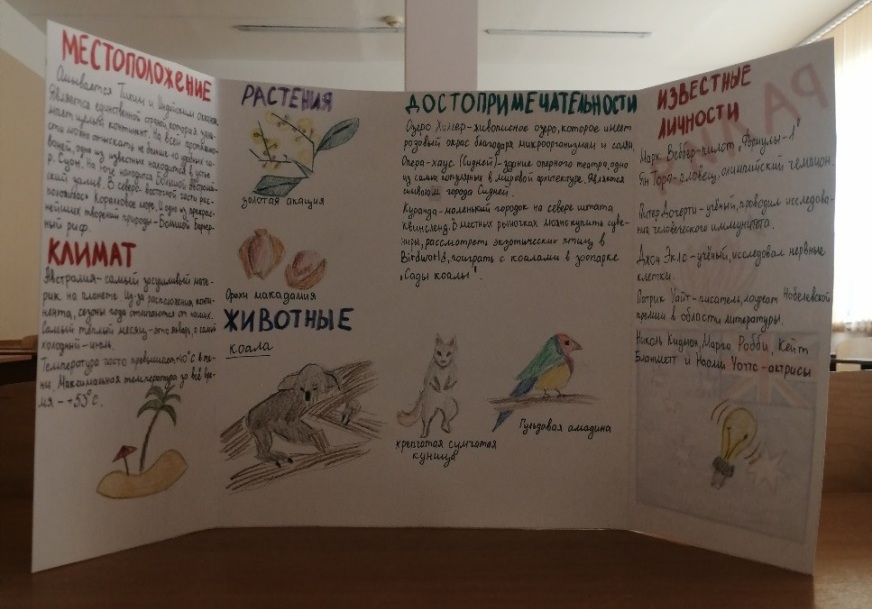 МЕСТОПОЛОЖЕНИЕ
Омывается Тихим и Индийским океаном.
Является единственной страной, которая зани-
мает целый континент. На всей протяжён-
сти можно отыскать не больше 10 удобных га-
ваней, одна из известных находится в устье
р. Суон. На югу находится Большой Австралий-
ский залив. В северо-восточной части рас-
положилось Коралловое море. И одно из прекрас-
нейших творений природы - Большой Барьер-
ный риф.
КЛИМАТ
Австралия - самый засушливый мате-
рик на планете. Из-за расположения конти-
нента, сезоны года отличаются от наших.
Самый тёплый месяц - это январь, а самый
холодный - июль.
Температура часто превышает +40°С в те-
ни. Максимальная температура за всё вре-
мя - +53°С.
РАСТЕНИЯ
золотая акация
Орехи макадамия
ЖИВОТНЫЕ
коала
крапчатая сумчатая
куница
Гульдовая амадина
ДОСТОПРИМЕЧАТЕЛЬНОСТИ
Озеро Хиллер - живописное озеро, которое имеет
розовый окрас благодаря микроорганизмам и солям.
Опера-Хаус (Сидней) - здание оперного театра, одно
из самых популярных в мировой архитектуре. Является
символом города Сидней.
Куранда - маленький городок на севере штата
Квинсленд. В местных рыночках можно купить суве-
ниры, рассмотреть экзотических птичек в
Birdworld, поиграть с коалами в зоопарке
„Сады коалы".
ИЗВЕСТНЫЕ
ЛИЧНОСТИ
Марк Веббер - пилот „Формулы-1"
Ян Торп - пловец, олимпийский чемпион.
Питер Догерти - учёный, проводил исследова-
ния человеческого иммунитета.
Джон Эклс - учёный, исследовал нервные
клетки.
Патрик Уайт - писатель, лауреат Нобелевской
премии в области литературы.
Николь Кидман, Марго Робби, Кейт
Бланшетт и Наоми Уоттс - актрисы